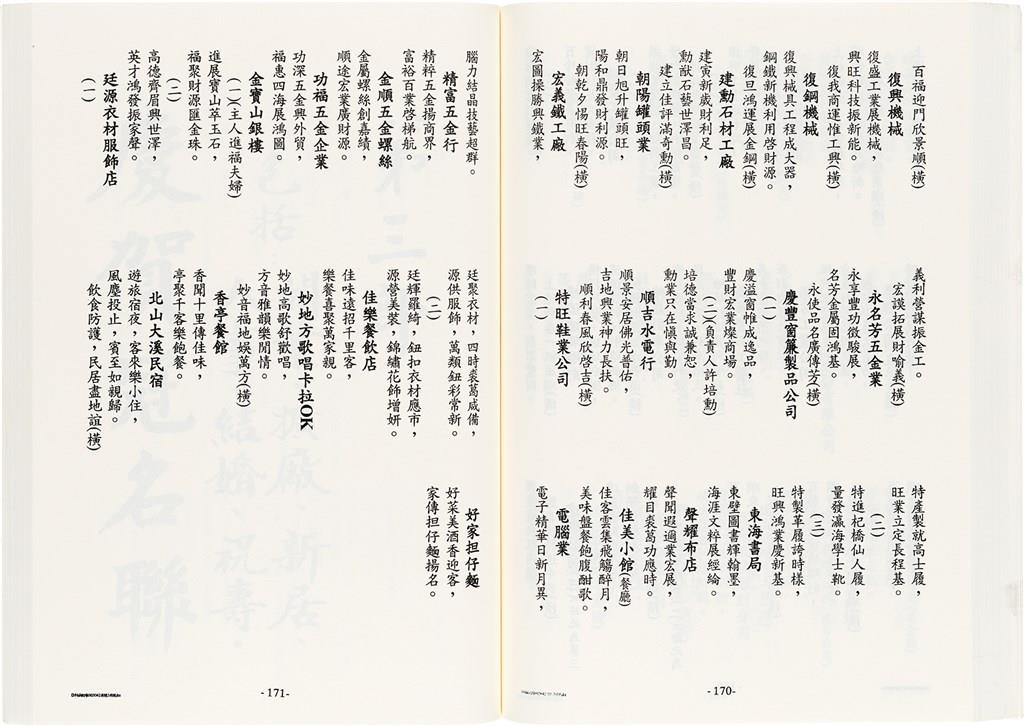 百福迎門欣景順(橫)
復興機械
復盛工業展機械，
興旺科技振新能。
復我商運惟工興(橫)
復鋼機械
復興械具工程成大器，
鋼鐵新機利用啓財源。
復旦鴻運展金鋼(橫)
建勳石材工廠
建寅新歲財利足，
勳猷石藝世澤昌。
建立佳評滿奇勳(橫)
朝陽罐頭業
朝日旭升罐頭旺，
陽和鼎發財利源。
朝乾夕惕旺春陽(橫)
宏義鐵工廠
宏圖操勝興鐵業，
義利營謀振金工。
宏謨拓展財喻義(橫)
永名芳五金業
永享豐功徵駿展，
名芳金屬固鴻基。
永使品名廣傳芳(橫)
慶豐窗簾製品公司
(一)
慶溢窗帷成逸品，
豐財宏業燦商場。
(二)(負責人許培勳)
培德當求誠兼恕，
勳業只在慎與勤。
順吉水電行
順景安居佛光普佑，
吉地興業神力長扶。
順利春風欣啓吉(橫)
特旺鞋業公司
(一)
特產製就高士履，
旺業立定長程基。
(二)
特進杞橋仙人履，
量發瀛海學士靴。
(三)
特製革履誇時樣，
旺興鴻業慶新基。
東海書局
東壁圖書輝翰墨，
海涯文粹展經綸。
聲耀布店
聲聞遐邇業宏展，
耀目裘葛功應時。
佳美小館(餐廳)
佳客雲集飛觴醉月，
美味盤餐飽腹酣歌。
電腦業
電子精華日新月異，
-170-
腦力結晶技藝超群。
精富五金行
精粹五金揚商界，
富裕百業啓梯航。
金順五金螺絲
金屬螺絲創嘉績，
順途宏業廣財源。
功福五金企業
功深五金興外貿，
福惠四海展鴻圖。
金寶山銀樓
(一)(主人進福夫婦)
進展寶山萃玉石，
福聚財源匯金珠。
(二)
高德齊眉興世澤，
英才鴻發振家聲。
廷源衣材服飾店
(一)
廷聚衣材，四時裘葛咸備，
源供服飾，萬類鈕彩常新。
(二)
廷輝羅綺，鈕扣衣材應市，
源營美裝，錦繡花飾增妍。
佳樂餐飲店
佳味遠招千里客，
樂餐喜聚萬家親。
妙地方歌唱卡拉OK
妙地高歌舒歡唱，
方音雅韻樂閒情。
妙音福地娛萬方(橫)
香亭餐館
香聞十里傳佳味，
亭聚千客樂飽餐。
北山大溪民宿
遊旅宿夜，客來樂小住，
風塵投止，賓至如親歸。
飲食防護，民居盡地誼(橫)
好家担仔麵
好菜美酒香迎客，
家傳担仔麵揚名。
-171-